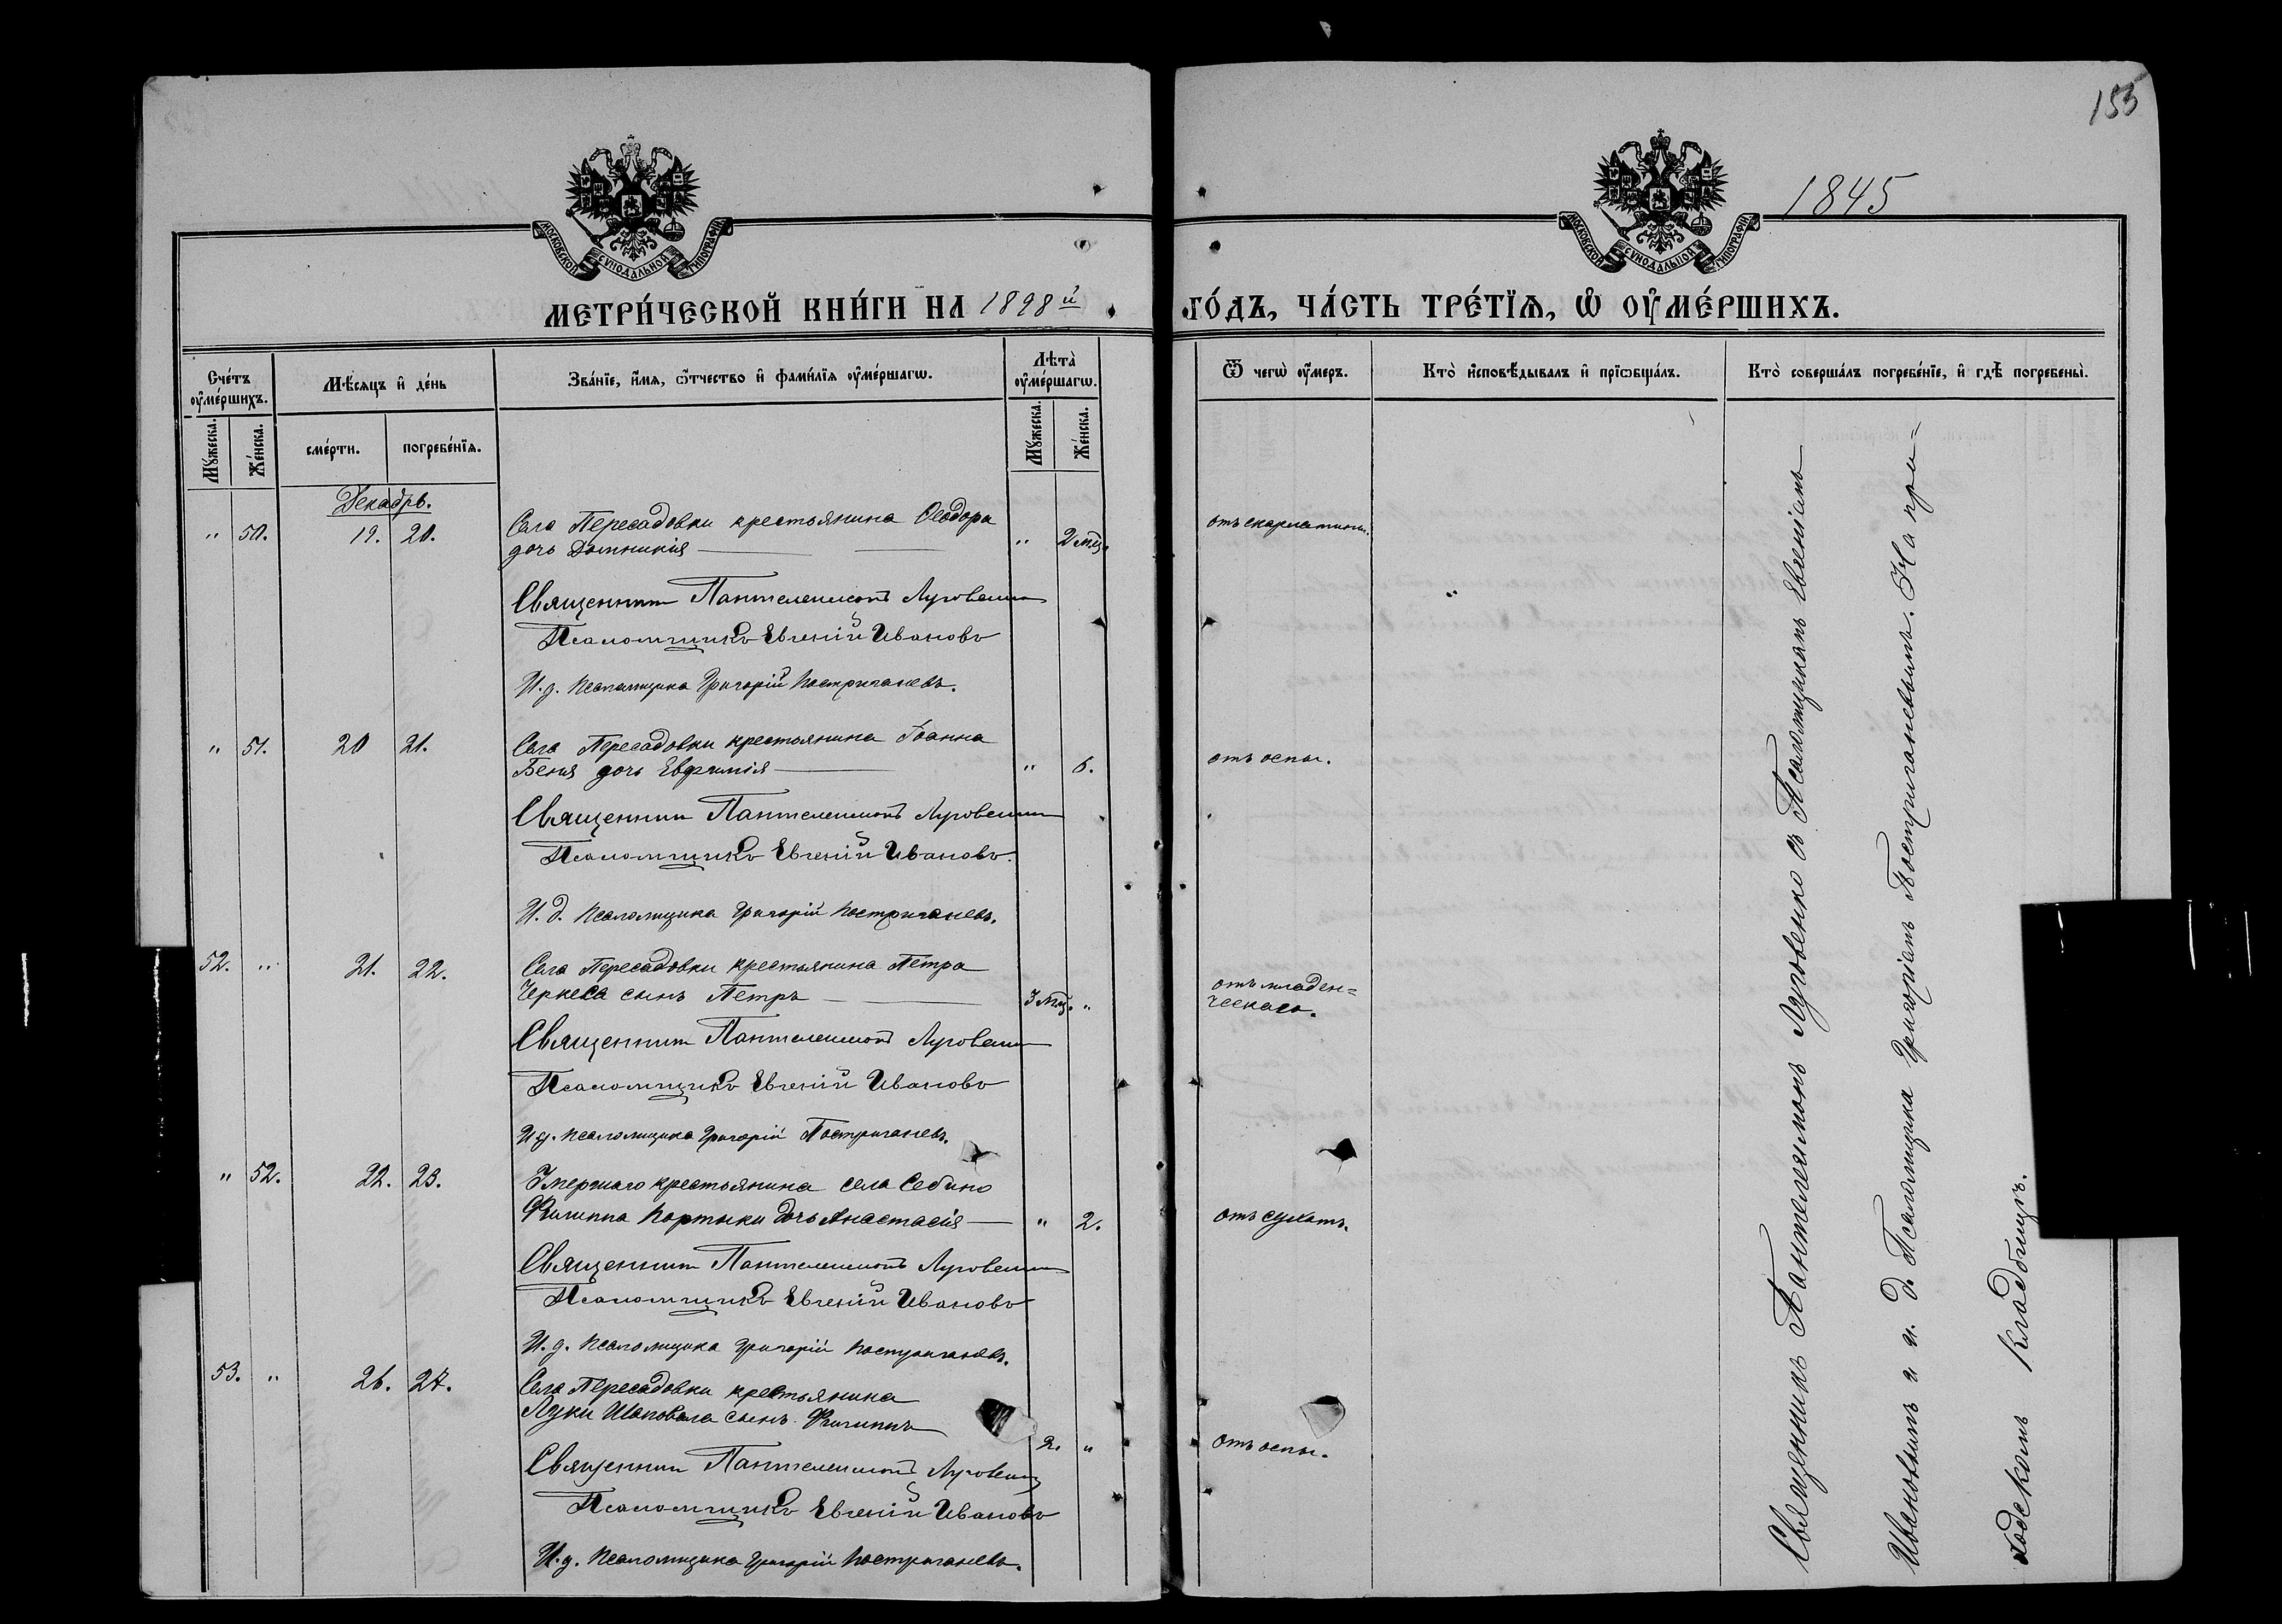 155
1845
МОСКОВСКОЙ СѴНОДАЛЬНОЙ ТИПОГРАФІИ
МОСКОВСКОЙ СѴНОДАЛЬНОЙ ТИПОГРАФІИ
МЕТРИ́ЧЕСКОЙ КНИ́ГИ НА 1898й ГО́ДЪ, ЧА́СТЬ ТРЕ́ТЇѦ, Ѡ҆ ОУ҆МЕ́РШИХЪ.
Сче́тъ оу҆ме́ршихъ.
Мѣ́сяцъ и҆ де́нь
Зва́нїе, и҆́мя, ѻ҆́тчество и҆ фами́лїя оу҆ме́ршагѡ.
Лѣта̀ оу҆ме́ршагѡ.
Ѿ чегѡ̀ оу҆́меръ.
Кто̀ и҆сповѣ́дывалъ и҆ прїѻбща́лъ.
Кто̀ соверша́лъ погребе́нїе, и҆ гдѣ̀ погребены̀.
Мꙋ́жеска.
Же́нска.
сме́рти.
погребе́нїя.
Мꙋ́жеска.
Же́нска.
Декабрь.
" 50. 19. 20. Села Пересадовки крестьянина Ѳеодора
дочь Домникія " 2 мц. отъ скарлатины.
Священник Пантелеимонъ Луговенко
Псаломщикъ Евгеній Ивановъ
И. д. псаломщика Григорій Постригачевъ.
" 51. 20 21. Села Пересадовки крестьянина Іоанна
дочь Евфимія " 6. отъ оспы.
Священник Пантелеимонъ Луговенко
Псаломщикъ Евгеній Ивановъ.
И. д. псаломщика Григорій Постригачевъ.
52. " 21. 22. Села Пересадовки крестьянина Петра
Черкеса сынъ Петръ 3 мц. " отъ младен=
ческаго.
Священник Пантелеимонъ Луговенко
Псаломщикъ Евгеній Ивановъ
И д. псаломщика Григорій Постригачевъ.
" 52. 22. 23. Умершаго крестьянина села Себино
Филиппа Портыки дочь Анастасія " 2. отъ сухотъ.
Священник Пантелеимонъ Луговенко
Псаломщикъ Евгеній Ивановъ
И. д. псаломщика Григорій Постригачевъ.
53. " 26. 27. Села Пересадовки крестьянина
Луки Шаповала сынъ Филиппъ 2. " отъ оспы.
Священник Пантелеимонъ Луговенко
Псаломщикъ Евгеній Ивановъ
И. д. псаломщика Григорій Постригачевъ.
Священникъ Пантелеимонъ Луговенко съ Псаломщикамъ Евгеніемъ
Ивановымъ и и. д. Псаломщика Григоріемъ Постригачевымъ. На при=
ходскомъ кладбищѣ.